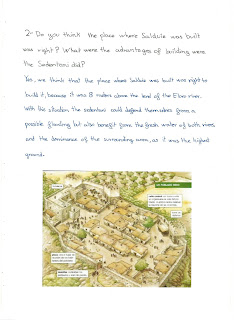 2- Do you think the place where Salduie was built
was right? What were the advantages of building were
the Sedentani did?
Yes, we think that the place where Salduie was built was right to
build it, because it was 8 meters above the level of the Ebro river.
With this situation the sedentani could defend themselves from a
possible flooding but also benefit from the fresh water of both rivers
and the dominance of the surrounding area, as it was the highest
ground.